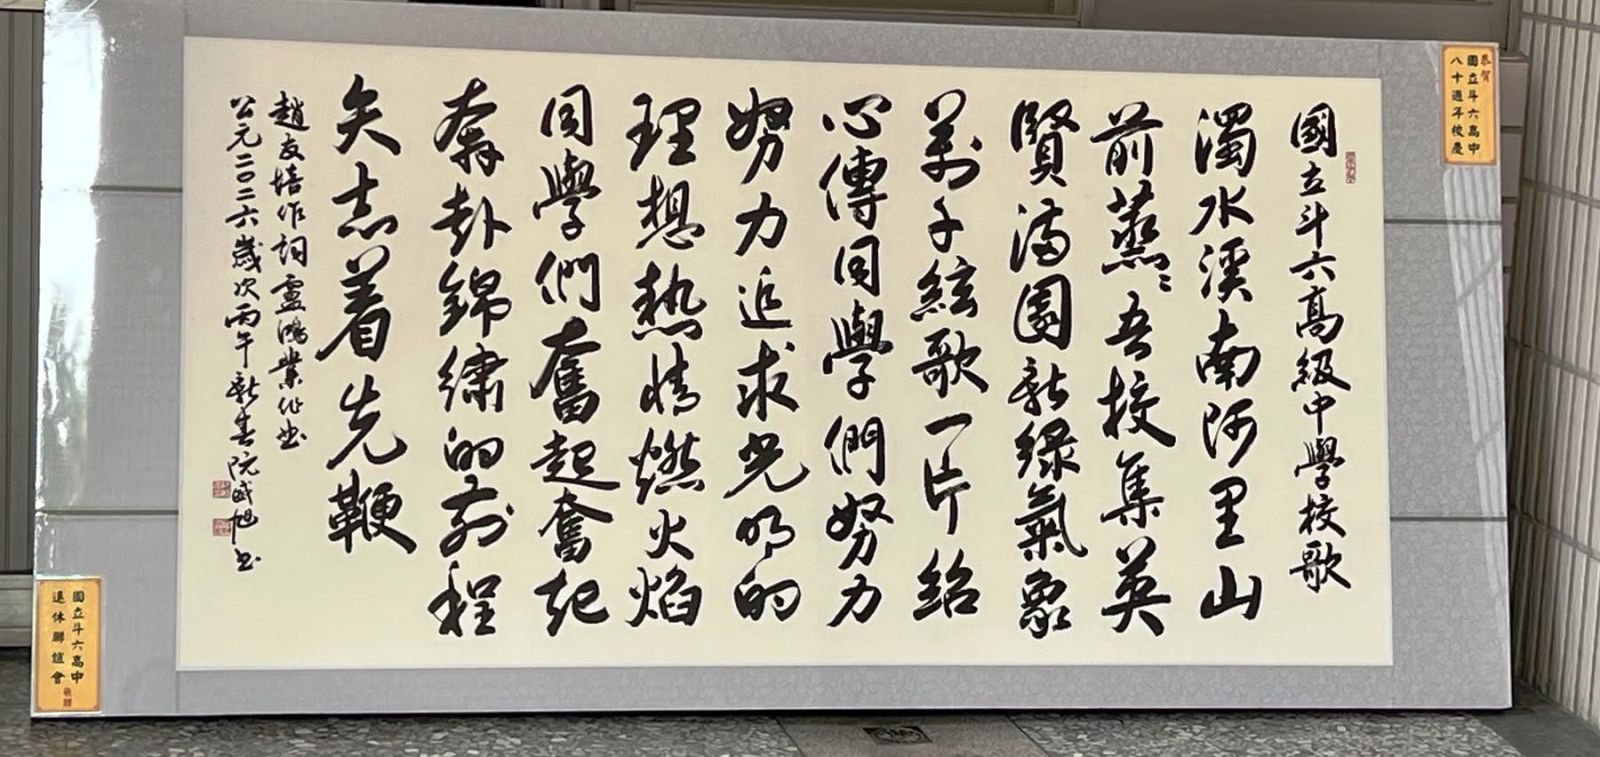 恭賀
國立斗六高中
八十週年校慶
國立斗六高級中學校歌
濁水溪南阿里山
前蒸〻吾校集英
賢滿園新綠氣象
萬千絃歌一片紹
心傳同學們努力
努力追求光明的
理想熱情燃火焰
同學們奮起奮起
奔赴錦繡的前程
矢志着先鞭
趙友培作詞盧鴻業作曲
公元二〇二六歲次丙午新春阮威旭書
國立斗六高中
退休聯誼會
敬贈